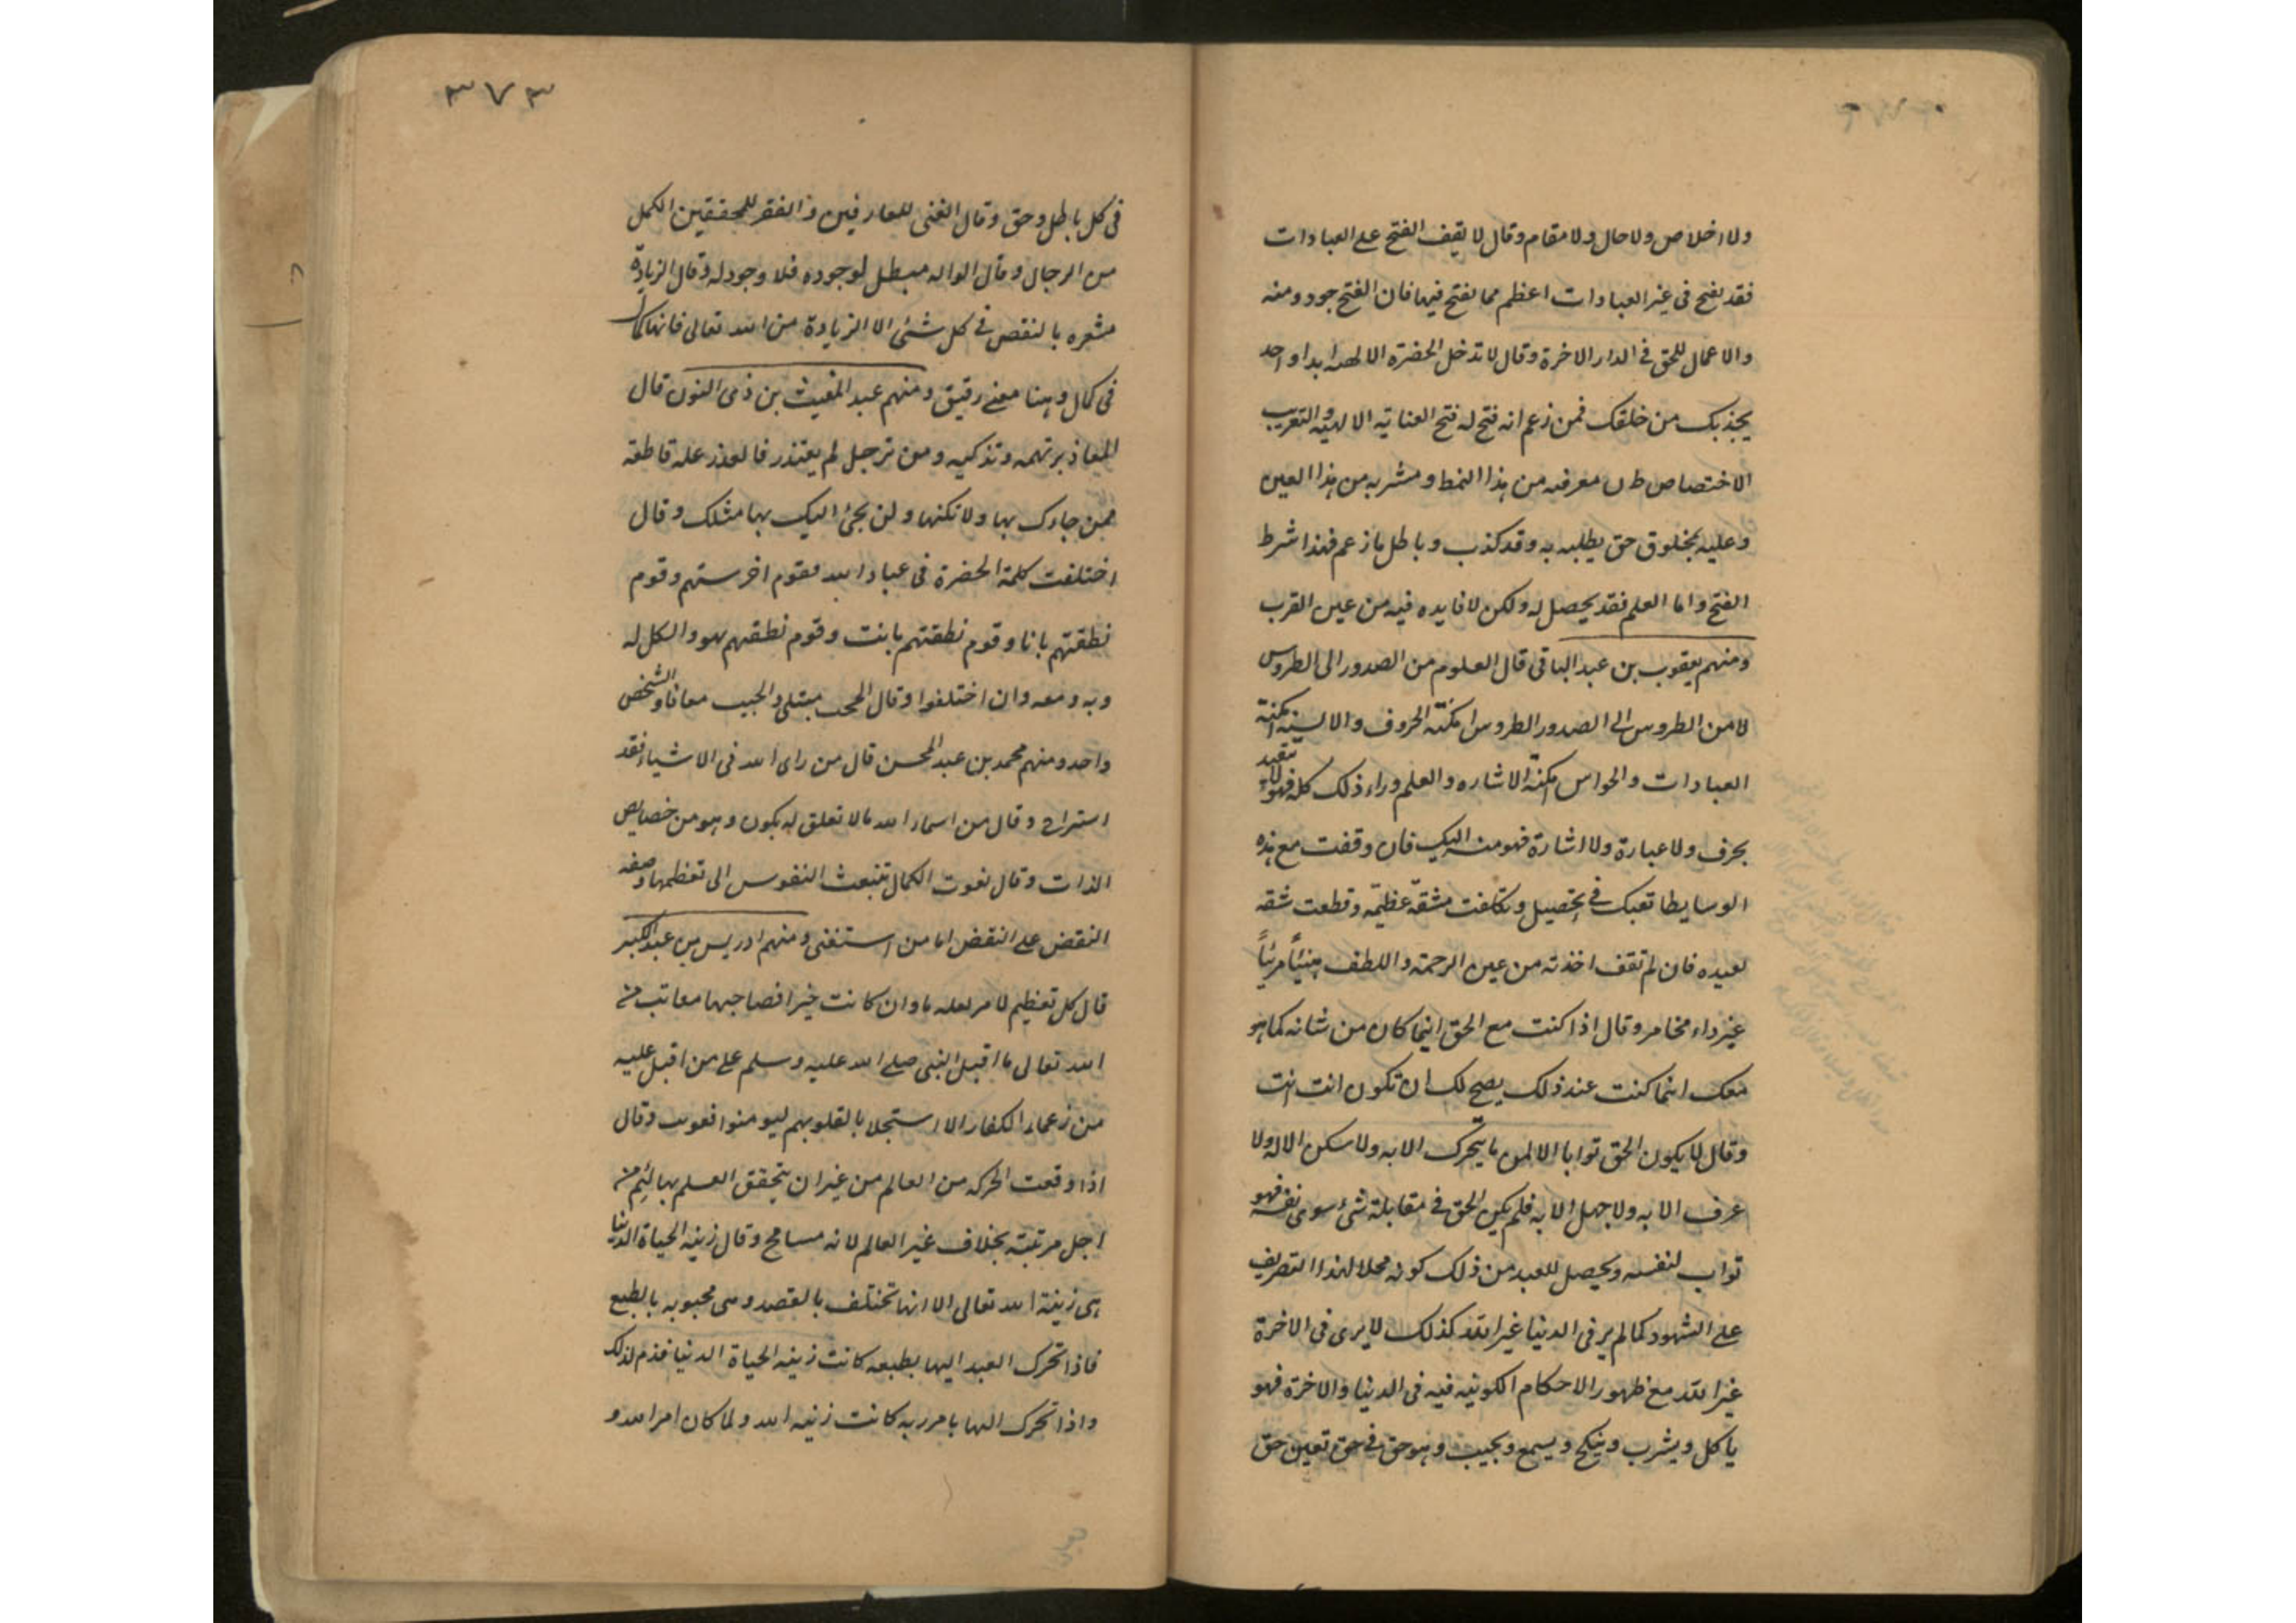 ولا اخلاص ولا حال ولا مقام وقال لا يقف الفتح على العبادات
فقد يفتح فى غير العبادات اعظم مما يفتح فيها فان الفتح جود ومنه
والاعمال للحق فى الدار الاخرة وقال لا تدخل الحضرة الالهيه ابدا واحد
يجذبك من خلقك فمن زعم انه فتح له فتح العناية الالهيه والتقريب
الاختصاص معرفه من هذا النمط ومشربه من هذا العين
وعليه لمخلوق حق يطلبه به وقد كذب وباطل ما زعم فهذا شرط
الفتح واما العلم فقد يحصل له ولكن لا فايده فيه من عين القرب
ومنهم يعقوب بن عبد الباقى قال العلوم من الصدور الى الطروس
لا من الطروس الى الصدور الطروس امكنة الحروف والالسنه امكنة
العبادات والحواس امكنة الاشاره والعلم وراء ذلك كله فهو لا يتقيد
بحرف ولا عبارة ولا اشارة فهو منه اليك فان وقفت مع هذه
الوسايط تعبك فى التحصيل وتكلفت مشقة عظيمة وقطعت شقه
بعيده فان لم تقف اخذته من عين الرحمة واللطف هنيئاً مريئاً
غير داء مخامر وقال اذا كنت مع الحق اينما كان من شانه كما هو
معك اينما كنت عند ذلك يصح لك ان تكون انت انت
وقال لا يكون الحق توابا الا لمن ما يتحرك الا به ولا سكن الا له ولا
عرف الا به ولا جهل الا به فلم يكن الحق فى مقابلة شئ سوى نفسه فهو
تواب لنفسه ويحصل للعبد من ذلك كونه محلا لهذا التصريف
على الشهود كما لم ير فى الدنيا غير الله كذلك لا يرى فى الاخرة
غير الله مع ظهور الاحكام الكونيه فيه فى الدنيا والاخرة فهو
ياكل ويشرب وينكح ويسمع ويجيب وهو حق فى حق تعين حق
٣٧٣
فى كل باطل وحق وقال الغنى للعارفين والفقر للمحققين الكمل
من الرجال وقال الواله مبطل لوجوده فلا وجود له وقال الزيادة
مشعره بالنقص فى كل شئ الا الزيادة من الله تعالى فانها كمال
فى كمال وهنا معنى رقيق ومنهم عبد المغيث بن ذى النون قال
المعاذير تهمه وتذكيه ومن ترجل لم يعتذر فالعذر علة قاطعة
فمن جاءك بها ولا تكنها ولن يجئ اليك بها مثلك وقال
اختلفت كلمة الحضرة فى عباد الله فقوم اخرستهم وقوم
نطقتهم بانا وقوم نطقتهم بانت وقوم نطقهم بهو والكل له
وبه ومعه وان اختلفوا وقال المحب مبتلى والحبيب معافا والشخص
واحد ومنهم محمد بن عبد المحسن قال من راى الله فى الاشياء فقد
استراح وقال من اسماء الله ما لا تعلق له بكون وهو من خصايص
الذات وقال نعوت الكمال تنبعث النفوس الى تعظيمها وصفه
النقض على النقض اما من استغنى ومنهم ادريس بن عبد الكبير
قال كل تعظيم لامر لعله ما وان كانت خيرا فصاحبها معاتب من
الله تعالى ما اقبل النبى صلى الله عليه وسلم على من اقبل عليه
من زعماء الكفار الا استجلابا لقلوبهم ليومنوا فعوتب وقال
اذا وقعت الحركه من العالم من غير ان يتحقق العلم بها ليم من
اجل مرتبته بخلاف غير العالم لانه مسامح وقال زينه الحياة الدنيا
هى زينة الله تعالى الا انها تختلف بالقصد وهى محبوبه بالطبع
فاذا تحرك العبد اليها بطبعه كانت زينه الحياة الدنيا فذم لذلك
واذا تحرك اليها بامر ربه كانت زينه الله ولما كان امر الله و